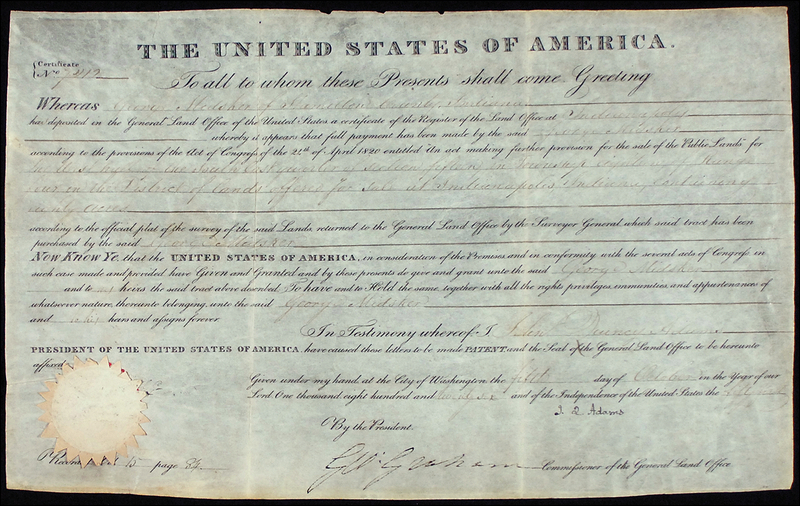 THE UNITED STATES OF AMERICA.
Certificate
No. 7242
To all to whom these Presents shall come Greeting
Whereas George Medsker of Hamilton County, Indiana
has deposited in the General Land Office of the United States a certificate of the Register of the Land Office at Indianapolis
whereby it appears that full payment has been made by the said George Medsker
according to the provisions of the Act of Congress of the 24th of April 1820 entitled An act making further provision for the sale of the Public Lands for
in the District of Lands offered for Sale at Indianapolis Indiana, Containing
eighty acres
according to the official plat of the survey of the said Lands, returned to the General Land Office by the Surveyor General which said tract has been
purchased by the said George Medsker
Now Know Ye, that the UNITED STATES OF AMERICA, in consideration of the Premises and in conformity with the several acts of Congress in
such case made and provided have Given and Granted and by these presents do give and grant unto the said George Medsker
and to his heirs the said tract above described To have and to Hold the same, together with all the rights privileges, immunities, and appurtenances of
whatsoever nature, thereunto belonging, unto the said George Medsker
and to his heirs and assigns forever.
In Testimony whereof I, John Quincy Adams
PRESIDENT OF THE UNITED STATES OF AMERICA, have caused these letters to be made PATENT, and the Seal of the General Land Office to be hereunto
affixed
Given under my hand, at the City of Washington, the day of October in the Year of our
Lord One thousand eight hundred and twenty six and of the Independence of the United States the
J. Q. Adams
By the President.
15 page 84 Geo. Graham Commissioner of the General Land Office